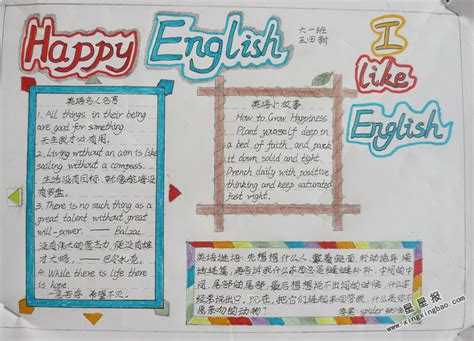 Happy English
六一班
I
like
English
英语名人名言
1. All things in their being
are good for something.
天生我才必有用。
2. Living without an aim is like
sailing without a compass.
生活没有目标,就像航海没
有罗盘。
3. There is no such thing as a
great talent without great
will-power. —— Balzac
没有伟大的意志力,便没有雄
才大略。——巴尔扎克
4. While there is life there
is hope.
一息若存 希望不灭。
英语小故事
How to Grow Happiness
Plant yourself deep in
a bed of faith, and pack
it down solid and tight.
Drench daily with positive
thinking and keep saturated
just right.
英语谜语:先想想什么人戴着面,
说谜语,再告诉我什么东西总是 中间的中
间,尾部的尾部,最后想想说不出词的时候,什么字
经常说出口,现在,把它们连起来回答我,什么是你不
愿亲吻的动物?
答案: spider 蜘蛛
星星报
www.xingxingbao.com